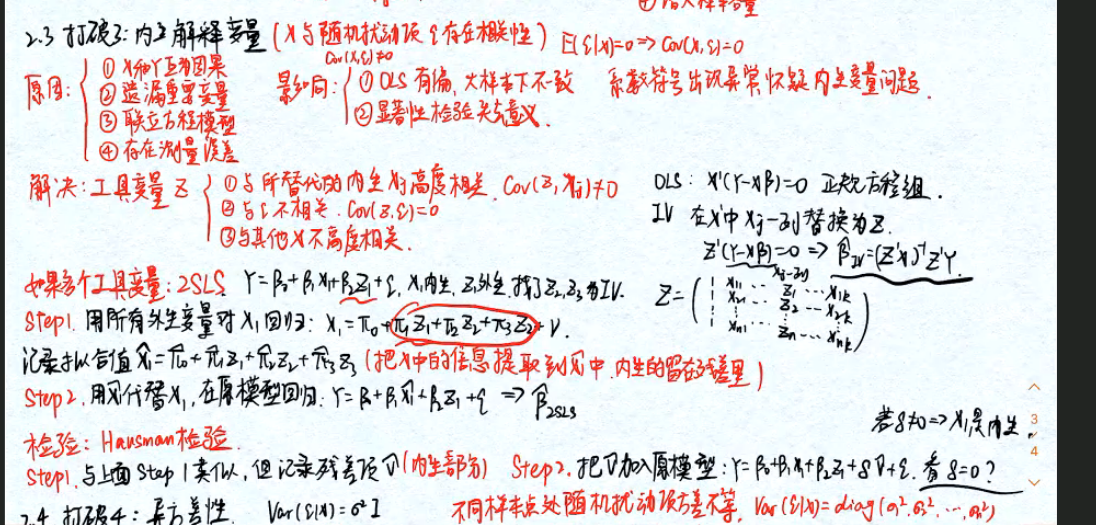 ④ 增大样本容量
2.3 打破3: 内生解释变量 (X与随机扰动项 ε 存在相关性) E(ε|X)=0 => Cov(X,ε)=0
Cov(X,ε)≠0
原因:
① X和Y互为因果
② 遗漏重要变量
③ 联立方程模型
④ 存在测量误差
影响:
① OLS 有偏, 大样本下不一致
② 显著性检验失去意义.
系数符号出现异常怀疑内生变量问题.
解决: 工具变量 Z
① 与所替代的内生 Xj 高度相关. Cov(Z, Xj)≠0
② 与 ε 不相关. Cov(Z,ε)=0
③ 与其他 X 不高度相关.
OLS: X'(Y-Xβ)=0 正规方程组.
IV 在X'中 Xj→Zj 替换为Z.
Z'(Y-Xβ)=0 => β̂IV=(Z'X)⁻¹Z'Y.
Xj→Zj
Z= ( 1 X11 ... Z1 ... X1k
1 X21 ... Z2 ... X2k
1 Xn1 ... Zn ... Xnk )
如果多个工具变量: 2SLS. Y=β0+β1X1+β2Z1+ε, X1内生, Z1外生, 找了Z2,Z3为IV.
Step1. 用所有外生变量对X1回归: X1=π0+π1Z1+π2Z2+π3Z3+V.
记录拟合值 X̂1=π̂0+π̂1Z1+π̂2Z2+π̂3Z3 (把X中的信息提取到X̂中, 内生的留在残差里)
Step2. 用X̂1代替X1, 在原模型回归: Y=β0+β1X̂1+β2Z1+ε => β̂2SLS
检验: Hausman检验.
若δ≠0 => X1是内生.
Step1. 与上面Step1类似, 但记录残差项V̂(内生部分) Step2. 把V̂加入原模型: Y=β0+β1X1+β2Z1+δV̂+ε. 看δ=0?
2.4 打破4: 异方差性. Var(ε|X)=σ²I 不同样本点处随机扰动项方差不等. Var(ε|X)=diag(σ1²,σ2²,...,σn²)
3
4